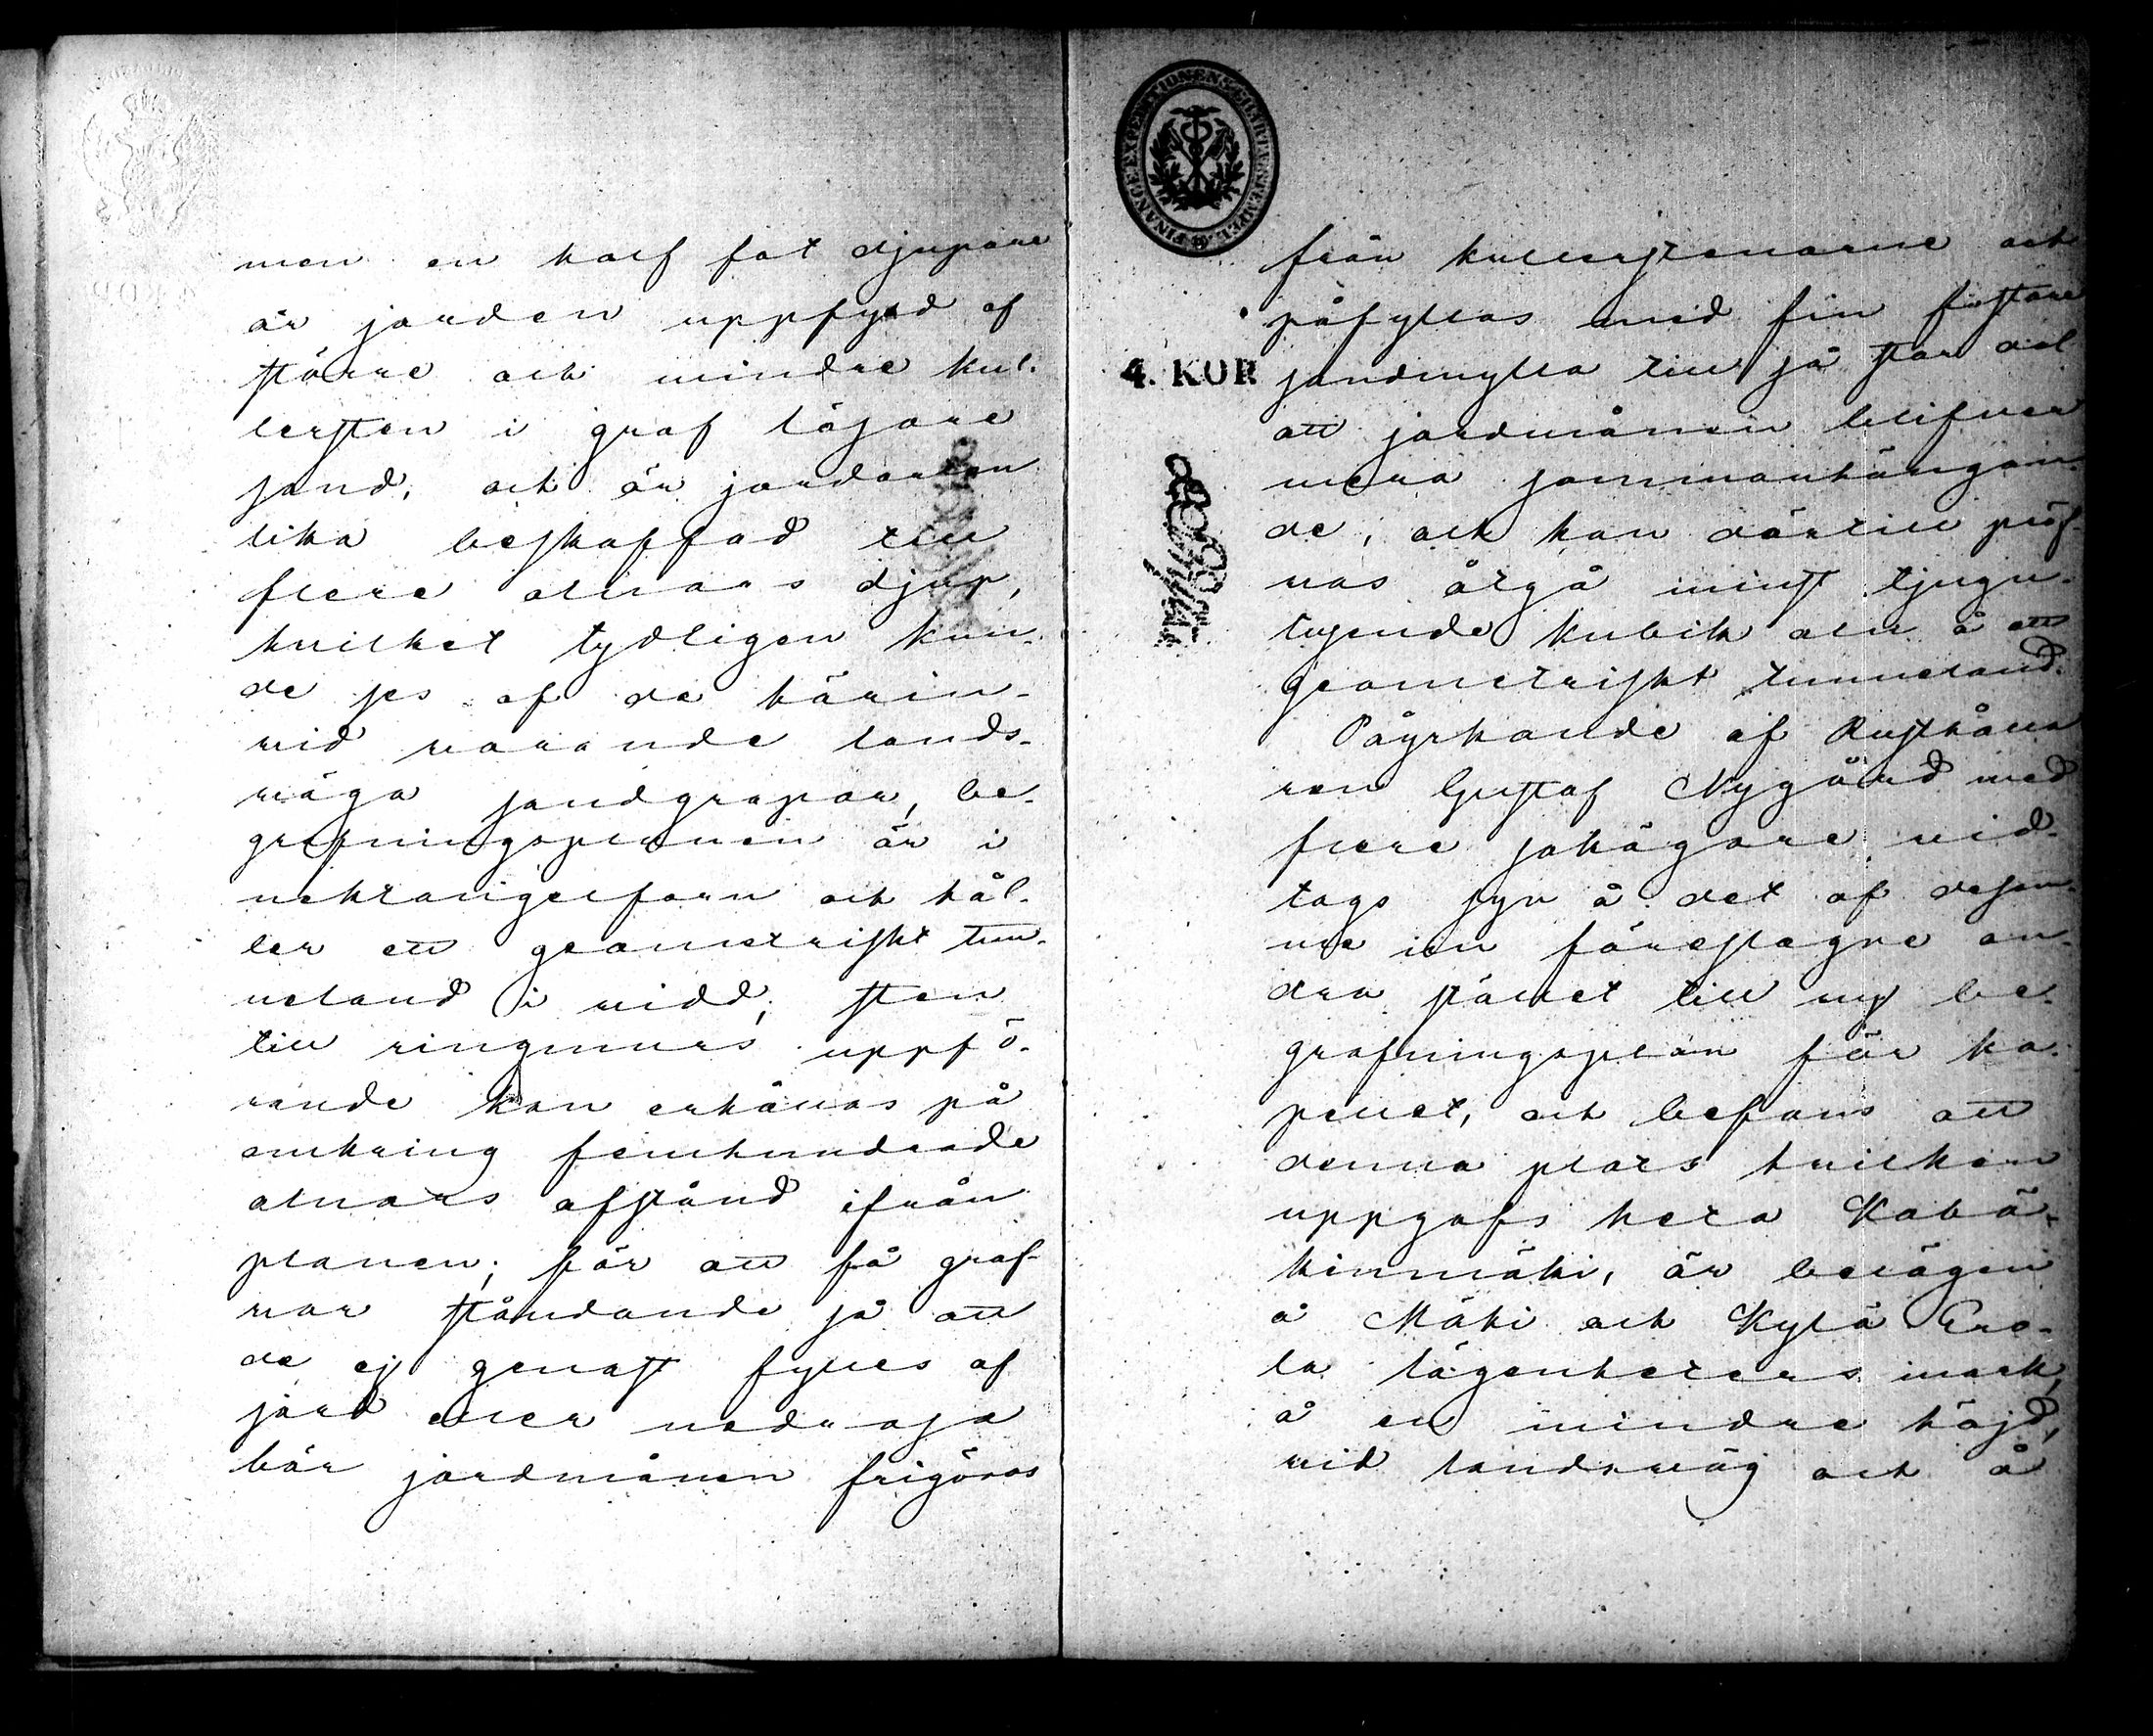 men en half fot djupare
är jorden uppfyld af
större och mindre kul-
lersten i graf lösare
sand, och är jordarten
lika beskaffad till
flere alnars djup,
hvilket tydligen kun-
de ses af de härin-
vid varande lands-
väga sandgropar, be-
grafningsplanen är i
rektangelform och hål-
ler ett geometriskt tun-
neland i vidd; sten
till ringmurs uppfö-
rande kan erhållas på
omkring femhundrade
alnars afstånd ifrån
planen; för att få graf-
var ståndande så att
de ej genast fylles af
jord eller nedrasa
bör jordmånen frigöras
från kullerstenarne och
påfyllas med fin fastare
4. KOP
sandmylla till så stor del
att jordmånen blifver
mera sammanhängan-
de, och kan därtill pröf-
vas åtgå minst tjugu-
tusende kubik aln å ett
geometriskt tunneland.
Påyrkande af Rusthålla
ren Gustaf Nygård med
flere sakägare vid-
togs syn å det af desam-
me nu föreslagne an-
dra stället till ny be-
grafningsplan för ka-
pellet, och befans att
denna plats hvilken
uppgafs heta Kabä-
kinmäki, är belägen
å Mäki och Kylä Ero-
la lägenheters mark,
å en mindre höjd,
vid landsväg och å